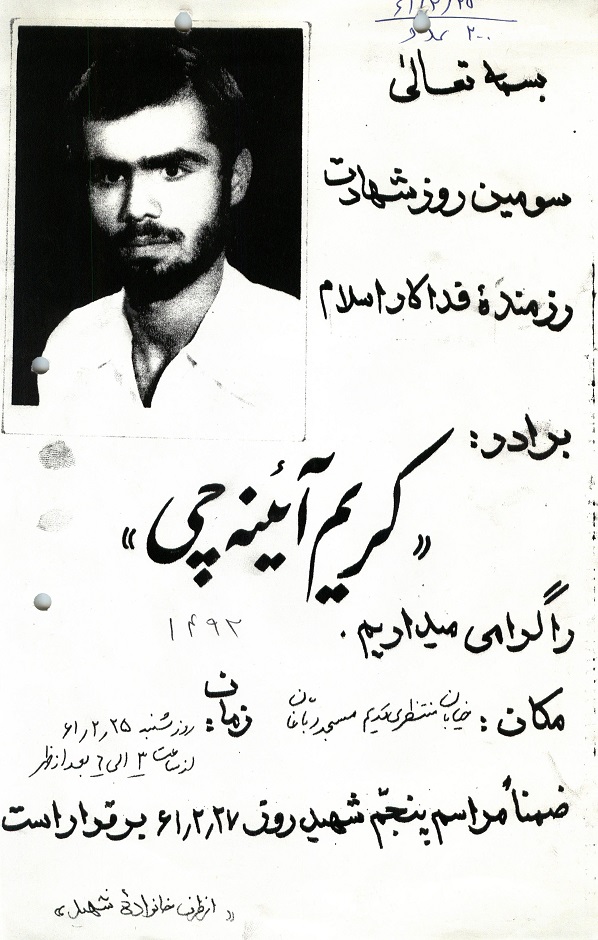 ۶۱/۲/۲۵
۲۰۰ عدد
بسمه تعالیٰ
سومین روز شهادت
رزمندهٔ فداکار اسلام
برادر:
« کریم آئینه چی »
را گرامی میداریم.
۱۴۹۲
مکان: خیابان منتظری قدیم مسجد دباغان
زمان: روز شنبه ۶۱٫۲٫۲۵
از ساعت ۳ الی ۶ بعدازظهر
ضمناً مراسم پنجم شهید روز ۶۱٫۲٫۲۷ برقرار است
« از طرف خانوادهٔ شهید »